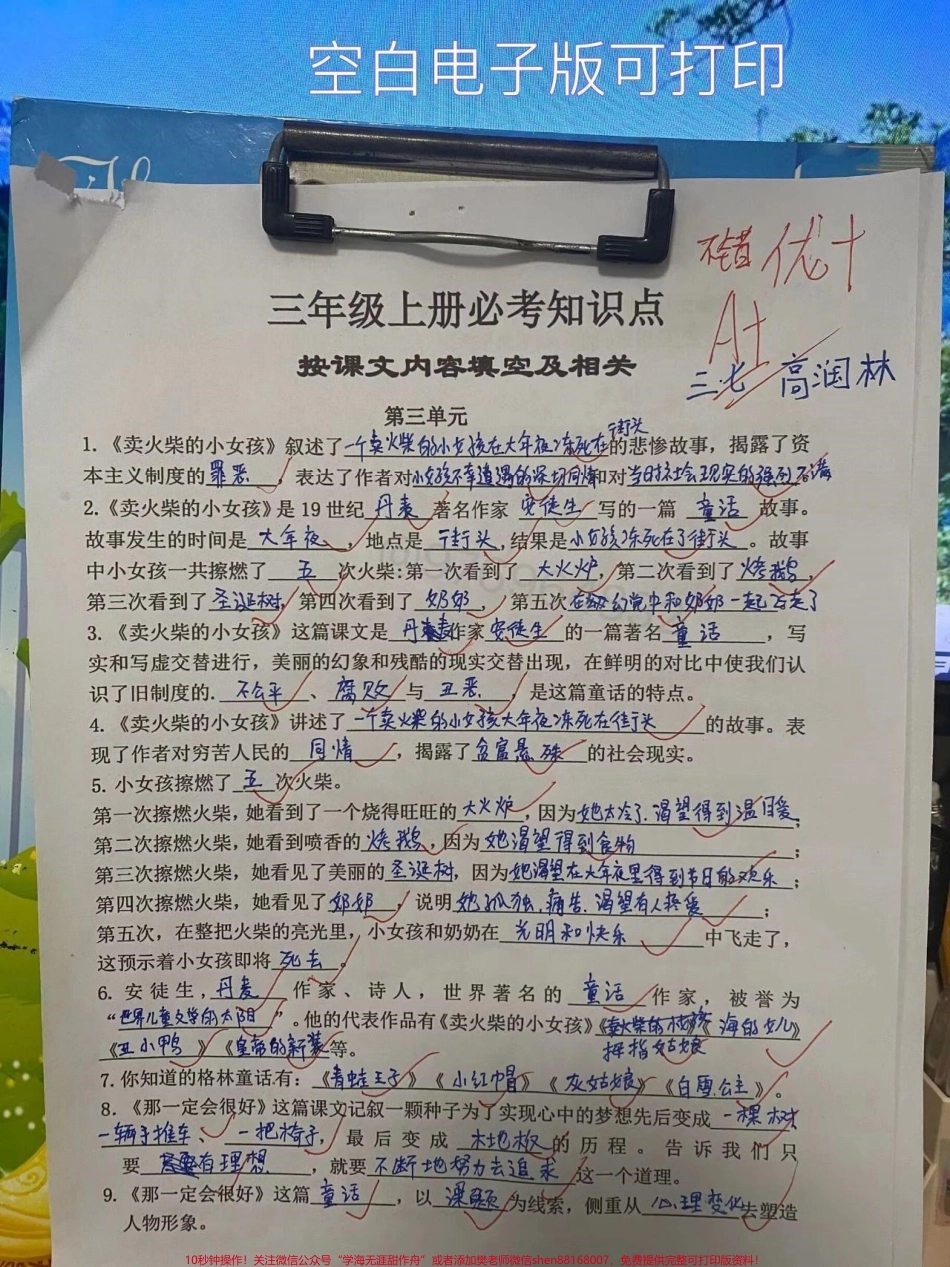 空白电子版可打印
不错 优+
A+
三年级上册必考知识点
三七 高润林
按课文内容填空及相关
第三单元
1.《卖火柴的小女孩》叙述了一个卖火柴的小女孩在大年夜冻死在街头的悲惨故事，揭露了资
本主义制度的罪恶，表达了作者对小女孩不幸遭遇的深切同情和对当时社会现实的强烈不满
2.《卖火柴的小女孩》是 19 世纪 丹麦 著名作家 安徒生 写的一篇 童话 故事。
故事发生的时间是 大年夜 ，地点是 街头，结果是小女孩冻死在了街头。故事
中小女孩一共擦燃了 五 次火柴:第一次看到了 大火炉，第二次看到了 烤鹅，
第三次看到了圣诞树，第四次看到了 奶奶 ， 第五次在幻觉中和奶奶一起飞走了
3.《卖火柴的小女孩》这篇课文是 丹麦作家安徒生 的一篇著名 童话 ，写
实和写虚交替进行，美丽的幻象和残酷的现实交替出现，在鲜明的对比中使我们认
识了旧制度的. 不公平 、 腐败 与 丑恶 ，是这篇童话的特点。
4.《卖火柴的小女孩》讲述了一个卖火柴的小女孩大年夜冻死在街头 的故事。表
现了作者对穷苦人民的 同情 ，揭露了贫富悬殊 的社会现实。
5. 小女孩擦燃了 五 次火柴。
第一次擦燃火柴，她看到了一个烧得旺旺的大火炉，因为她太冷了.渴望得到温暖；
第二次擦燃火柴，她看到喷香的 烤鹅，因为她渴望得到食物 ；
第三次擦燃火柴，她看见了美丽的圣诞树，因为她渴望在大年夜里得到节日的欢乐 ；
第四次擦燃火柴，她看见了奶奶 ，说明她孤独.痛苦.渴望有人疼爱 ；
第五次，在整把火柴的亮光里，小女孩和奶奶在 光明和快乐 中飞走了，
这预示着小女孩即将死去 。
6. 安徒生，丹麦 作家、诗人，世界著名的 童话 作家，被誉为
“世界儿童文学的太阳 ”。他的代表作品有《卖火柴的小女孩》《拇指姑娘》《海的女儿》
《丑小鸭 》《皇帝的新装等。
7. 你知道的格林童话有：《青蛙王子》《小红帽》《灰姑娘》《白雪公主》。
8. 《那一定会很好》这篇课文记叙一颗种子为了实现心中的梦想先后变成 一棵树
一辆手推车、 一把椅子， 最后变成 木地板 的历程。告诉我们只
要 有理想 ，就要 不断地努力去追求 这一个道理。
9. 《那一定会很好》这篇 童话 ，以 课题 为线索，侧重从 心理变化去塑造
人物形象。
10秒钟操作！关注微信公众号“学海无涯甜作舟”或者添加樊老师微信shen88168007，免费提供完整可打印版资料！